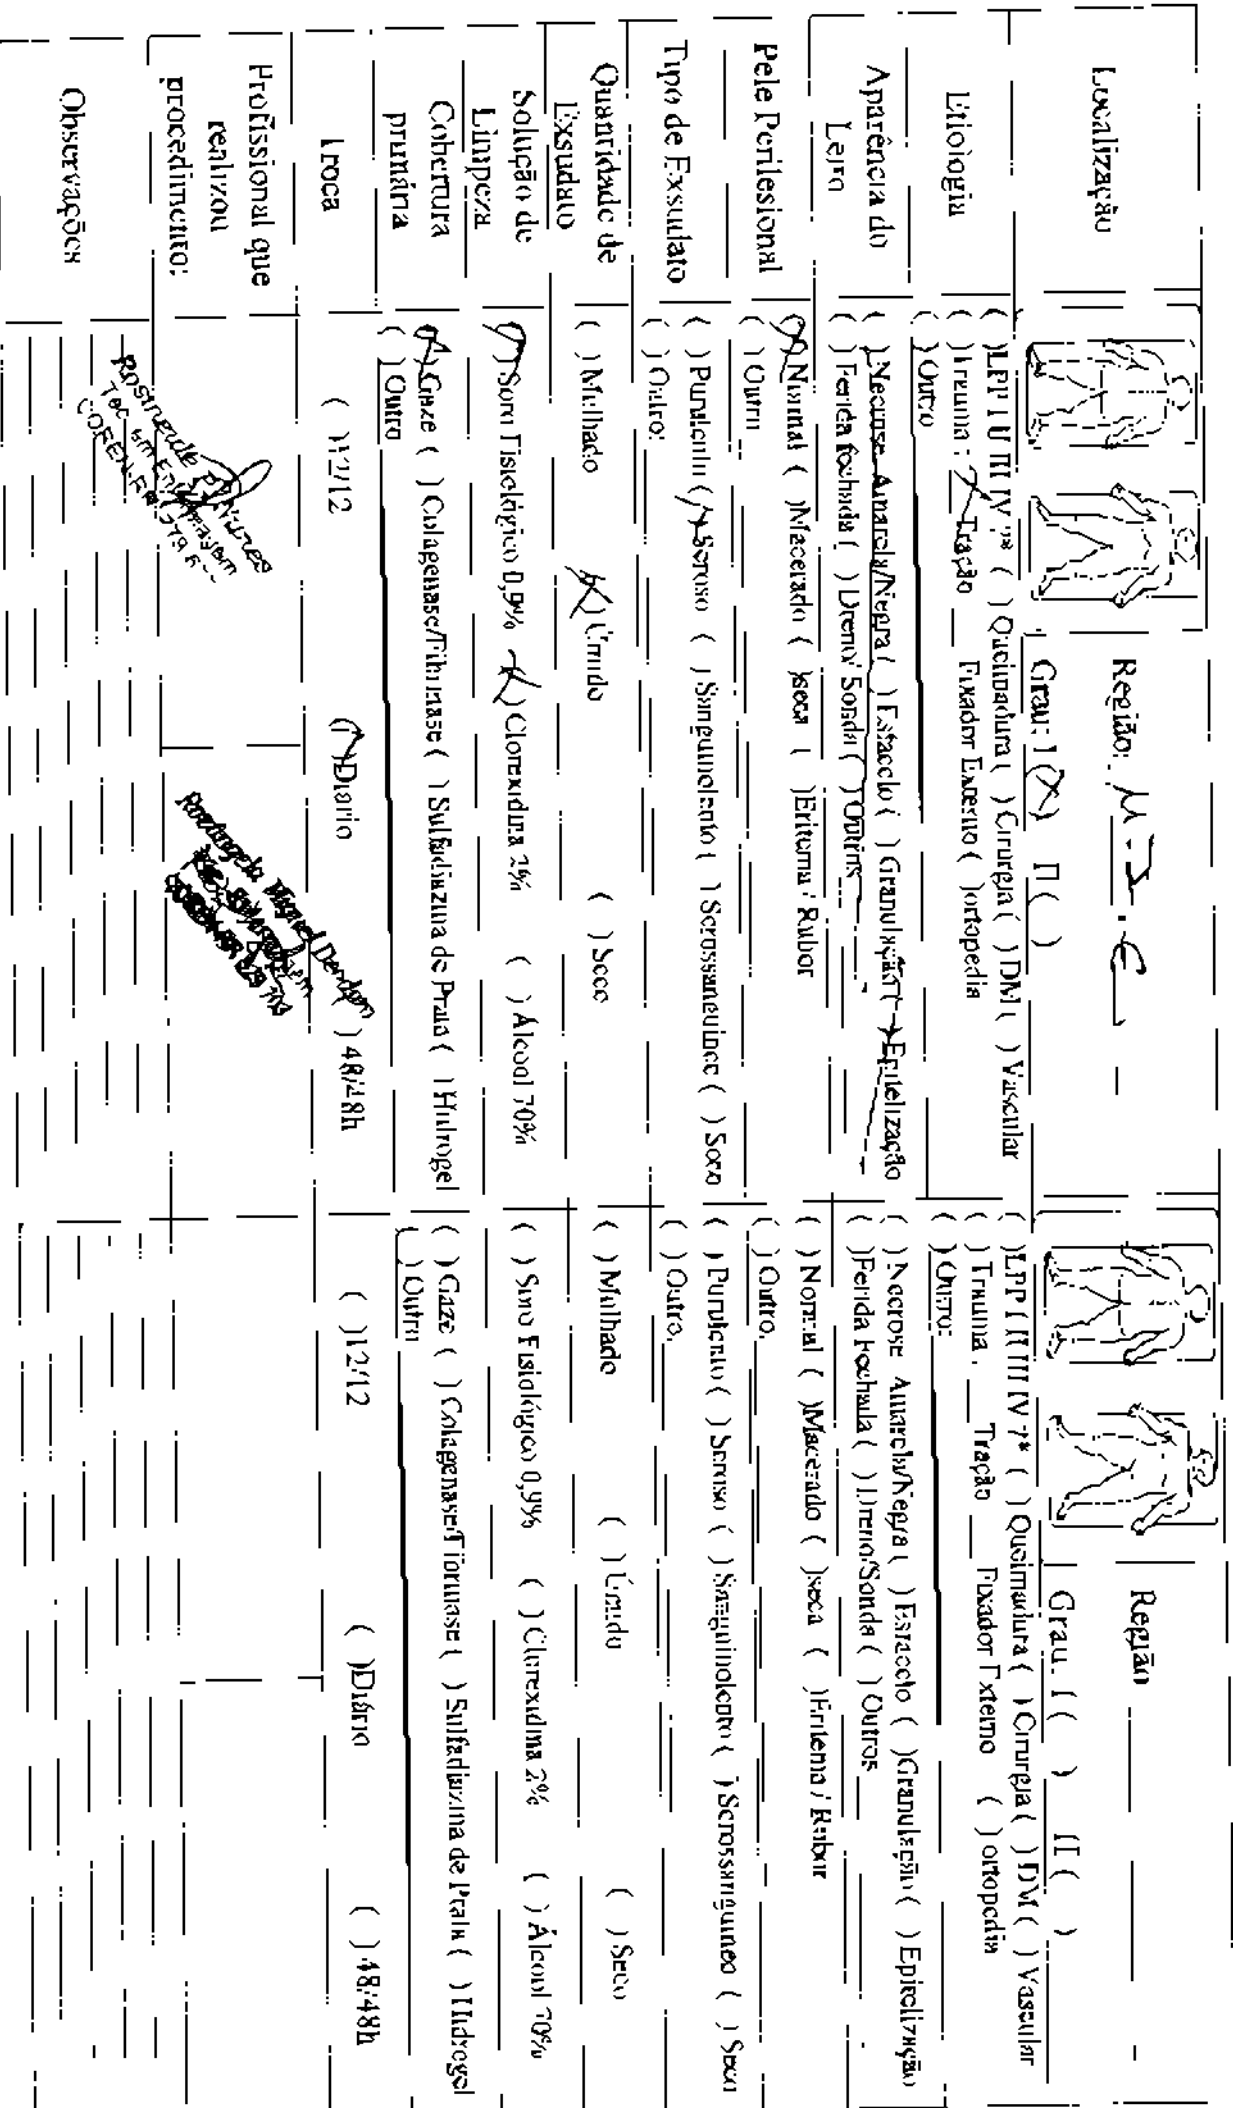 Localização
Região: M.I.E
Grau: I (X) II ( )
Região
Grau. I ( ) II ( )
Etiologia
( )LPP I II III IV ?* ( ) Queimadura ( ) Cirurgia ( ) DM ( ) Vascular
( )Trauma : X Tração __ Fixador Externo ( )ortopedia
( )Outro
( )LPP I II III IV ?* ( ) Queimadura ( ) Cirurgia ( ) DM ( ) Vascular
( ) Trauma . __ Tração __ Fixador Externo ( )ortopedia
( )Outro:
Aparência do
Leito
( )Necrose Amarela/Negra ( ) Esfacelo ( ) Granulação ( ) Epitelização
( )Ferida fechada ( ) Dreno/ Sonda ( ) Outros
( ) Necrose Amarela/Negra ( ) Esfacelo ( )Granulação ( ) Epitelização
( )Ferida Fechada ( ) Dreno/Sonda ( ) Outros
Pele Perilesional
(X)Normal ( )Macerado ( )seca ( )Eritema / Rubor
( ) Outro
( ) Normal ( )Macerado ( )seca ( )Eritema / Rubor
( ) Outro.
Tipo de Exsudato
( ) Purulento (X) Seroso ( ) Sanguinolento ( ) Serossanguineo ( ) Seco
( ) Outro:
( ) Purulento ( ) Seroso ( ) Sanguinolento ( ) Serossanguineo ( ) Seco
( ) Outro.
Quantidade de
Exsudato
( ) Molhado (X) Úmido ( ) Seco
( ) Molhado ( ) Úmido ( ) Seco
Solução de
Limpeza
(X) Soro Fisiológico 0,9% (X) Clorexidina 2% ( ) Álcool 70%
( ) Soro Fisiológico 0,9% ( ) Clorexidina 2% ( ) Álcool 70%
Cobertura
primária
(X) Gaze ( ) Colagenase/Fibrinase ( ) Sulfadiazina de Prata ( ) Hidrogel
( ) Outro
( ) Gaze ( ) Colagenase/Fibrinase ( ) Sulfadiazina de Prata ( ) Hidrogel
( ) Outro
Troca
( )12/12 (X)Diario ( ) 48/48h
( )12/12 ( )Diário ( ) 48/48h
Profissional que
realizou
procedimento:
Nunes
Tec em Enfermagem
COREN-PR
Observações